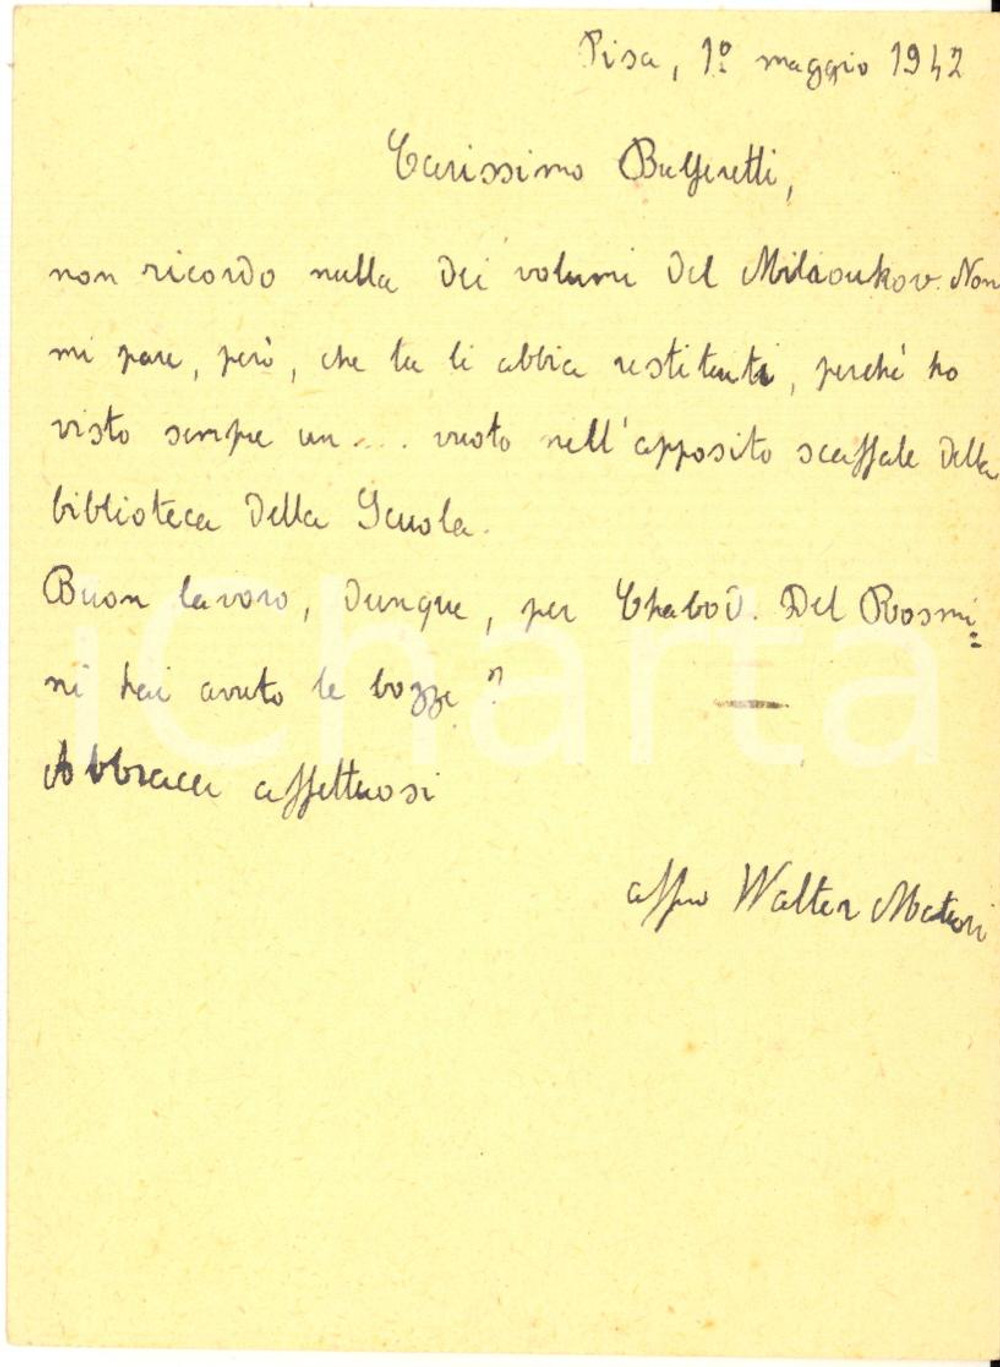 Pisa, 1º maggio 1942
Carissimo Bulferetti,
non ricordo nulla dei volumi del Milioukov. Non
mi pare, però, che tu li abbia restituiti, perché ho
visto sempre un.... vuoto nell'apposito scaffale della
biblioteca della Scuola.
Buon lavoro, dunque, per Chabod. Del Rosmi=
ni hai avuto le bozze?
Abbracci affettuosi
affmo Walter Maturi
iCharta